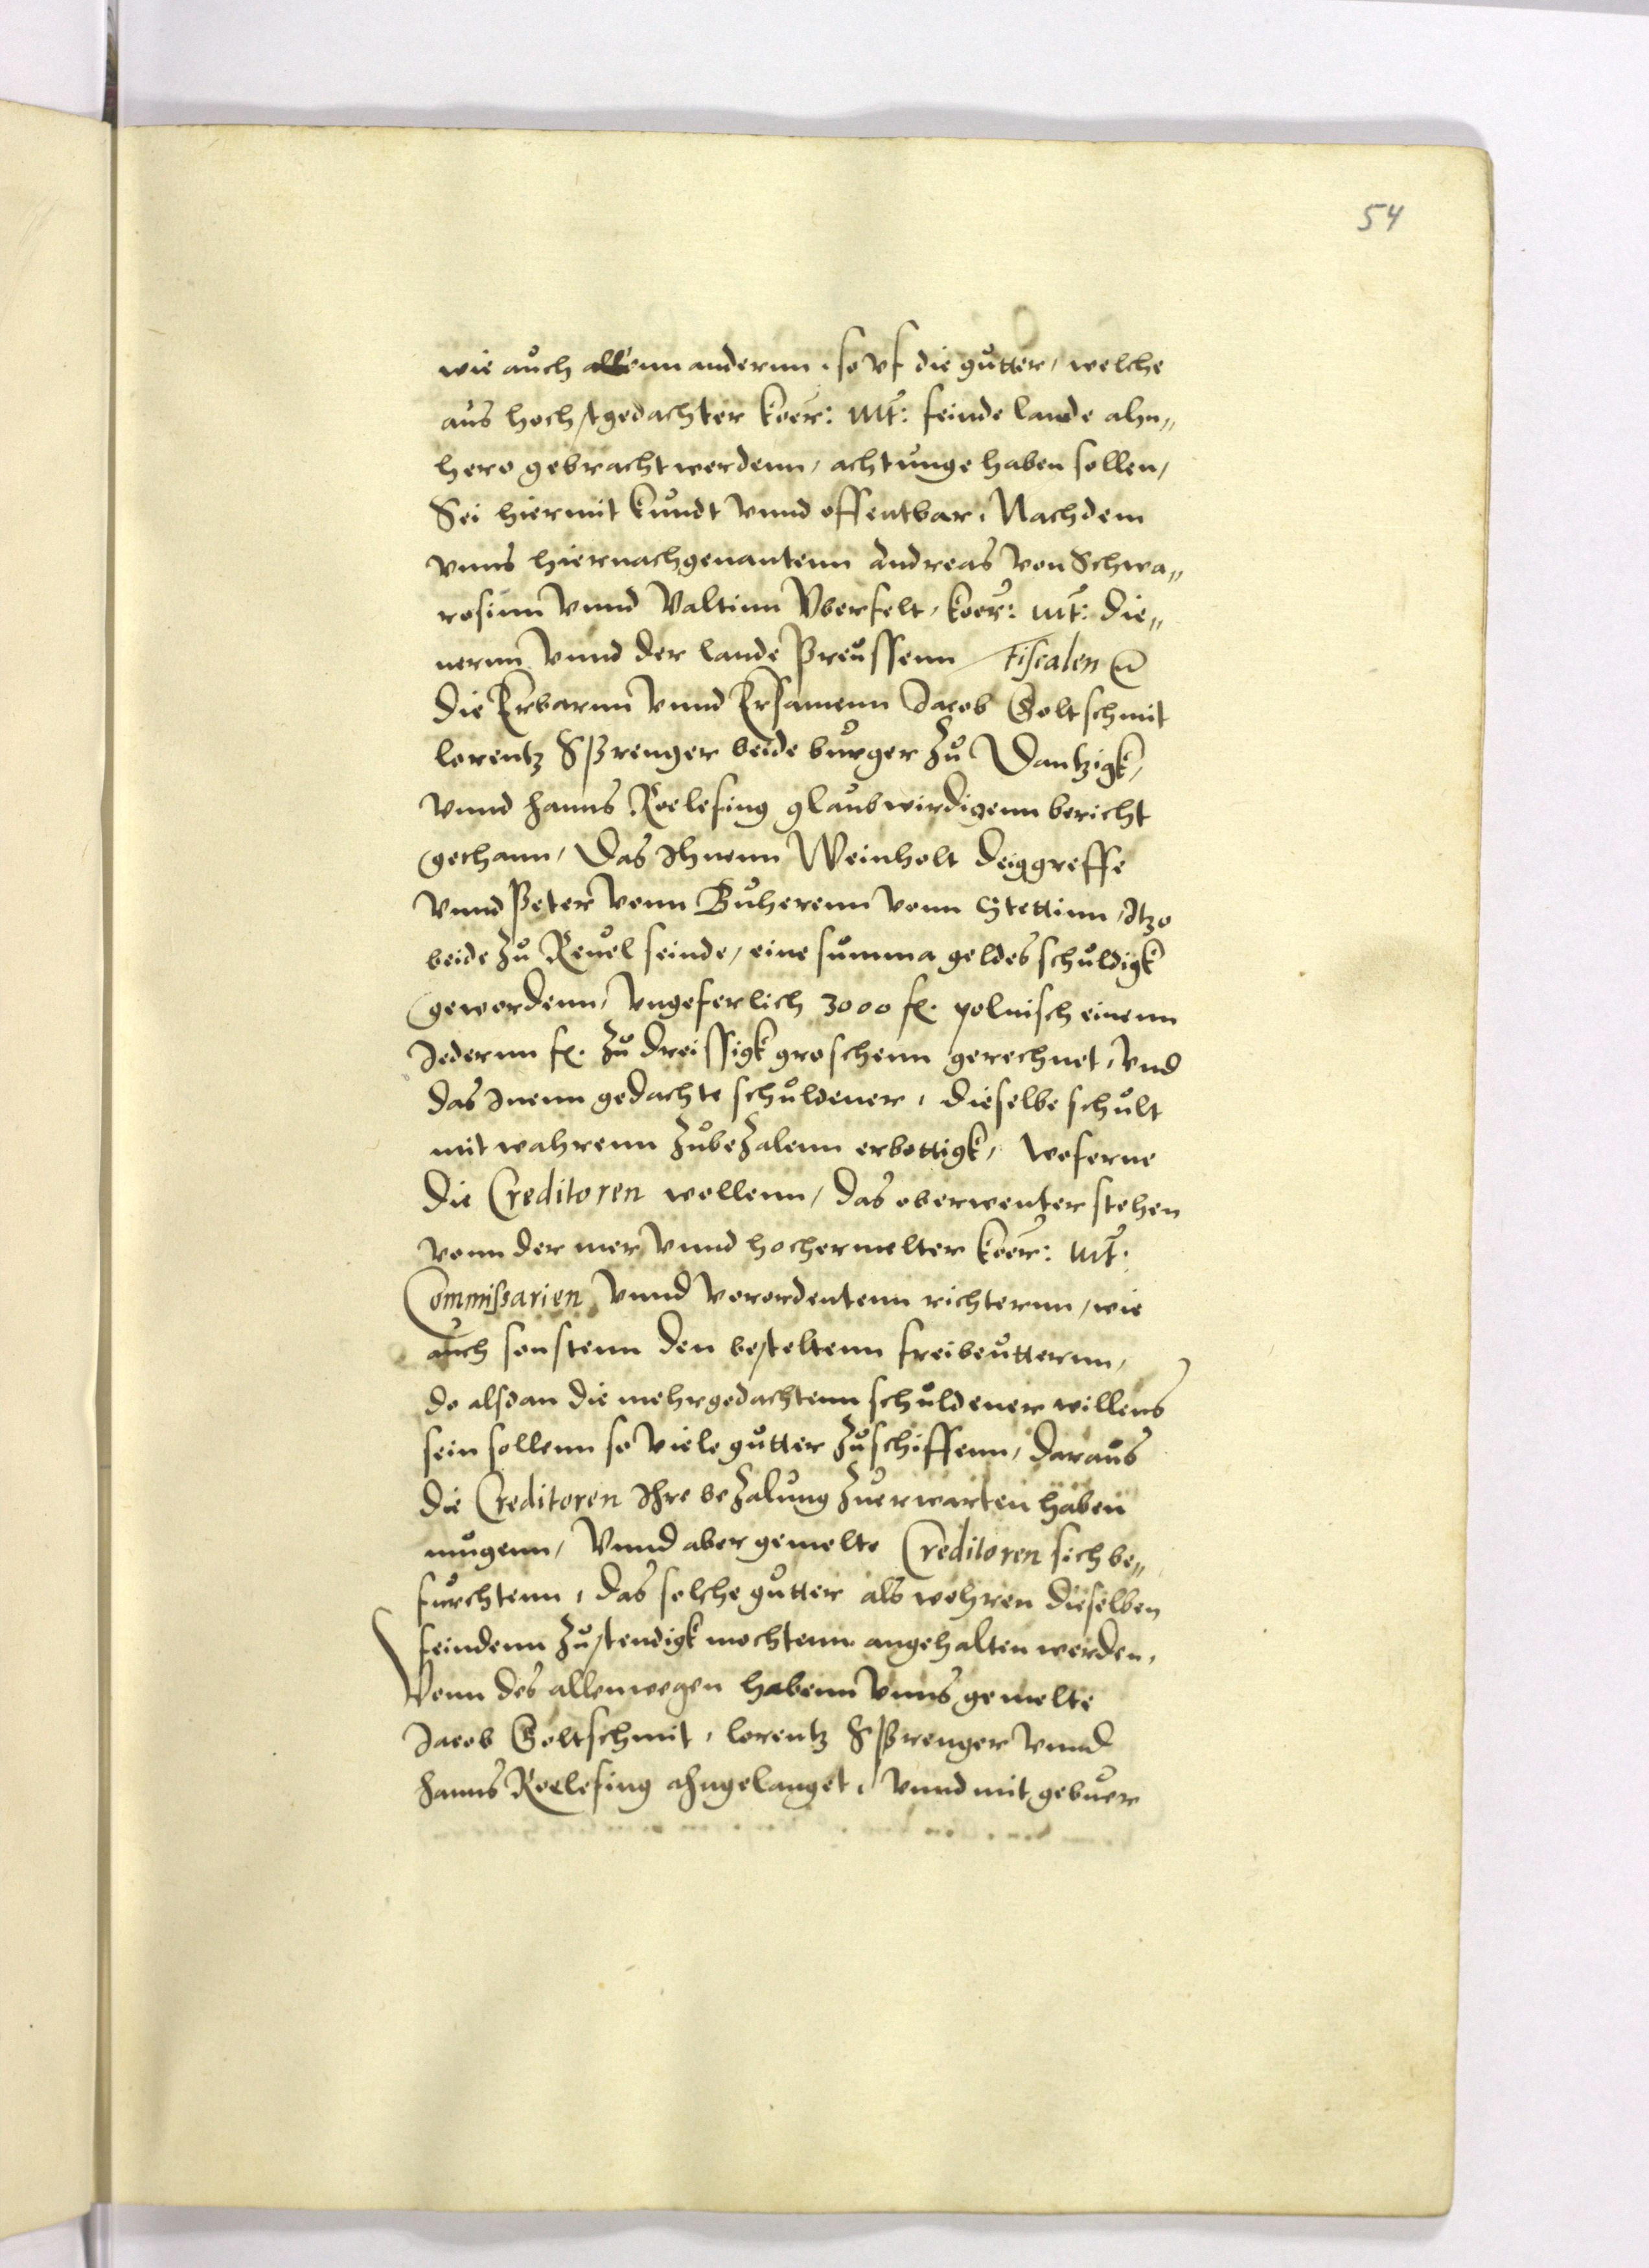 54
wie auch allenn anderenn, so vf die gutter, welche
aus hochstgedachter Koer: Mt: feinde lande ahn„
hero gebracht werdenn, achtunge haben sollen,
Sei hiermit kundt vnnd offentbar, Nachdem
vnns hiernachgenantenn Andreas von Schwa„
rosinn vnnd Valtinn Vberfelt, Koer: Mt: die„
nernn vnnd der lande Preussenn Fiscalen
die Erbarnn vnnd Ersamenn Jacob Goltschmit
lorentz Sprenger beide burger zu Dantzigk,
vnnd hanns Roelefing glaubwirdigenn bericht
gethann, Das Ihnenn Weinholt Deiggreffe
vnnd Peter vonn Buherenn vonn Stettinn, Itzo
beide zu Reuel seinde, eine summa geldes schuldigk
gewordenn, vngeferlich 3000 fl. polnisch einenn
Jedernn fl. zu dreissigk groschenn gerechnet, vnd
das Inenn gedachte schuldener, dieselbe schult
mit wahrenn zubezalenn erbottigk, woferne
die Creditoren wollenn, das eberwenter stehen
vonn der mer vnnd hochermelter Koer: Mt:
Commissarien vnnd verordentenn richternn, wie
auch sonstenn den besteltenn freibeutternn,
do alsdan die mehrgedachtenn schuldener willens
sein sollenn so viele gutter zuschiffenn, daraus
die Creditoren Ihre bezalung zuerwarten haben
mugenn, Vnnd aber gemelte Creditoren sich be„
furchtenn, das solche gutter als wehren dieselben
feindenn zustendigk mochtenn angehalten werden,
Vonn des allenwegen habenn vnns gemelte
Jacob Goltschmit, lorentz Sprenger vnnd
hanns Roelefing ahngelanget, vnnd mit gebuer